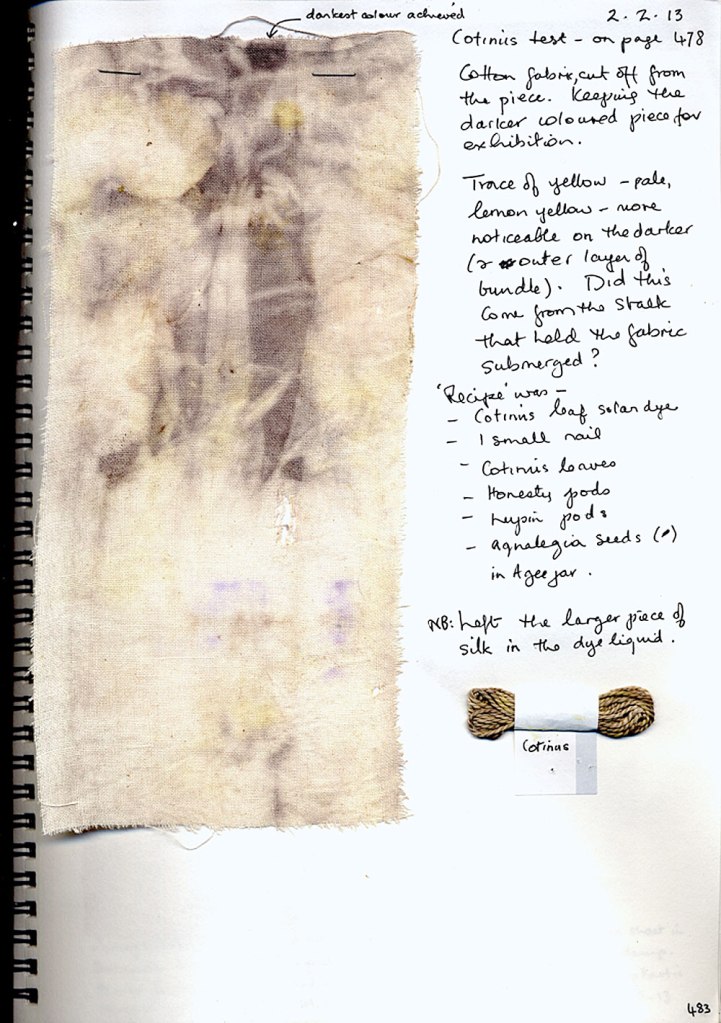 darkest colour achieved
2.2.13
Cotinus test - on page 478
Cotton fabric, cut off from
the piece. Keeping the
darker coloured piece for
exhibition.
Trace of yellow - pale,
lemon yellow - more
noticeable on the darker
(& outer layer of
bundle). Did this
come from the stalk
that held the fabric
submerged?
'Recipe' was -
- Cotinus leaf solar dye
- 1 small nail
- Cotinus leaves
- Honesty pods
- Lupin pods
- aquilegia seeds (
in Agee jar.
NB: Left the larger piece of
silk in the dye liquid.
Cotinus
483